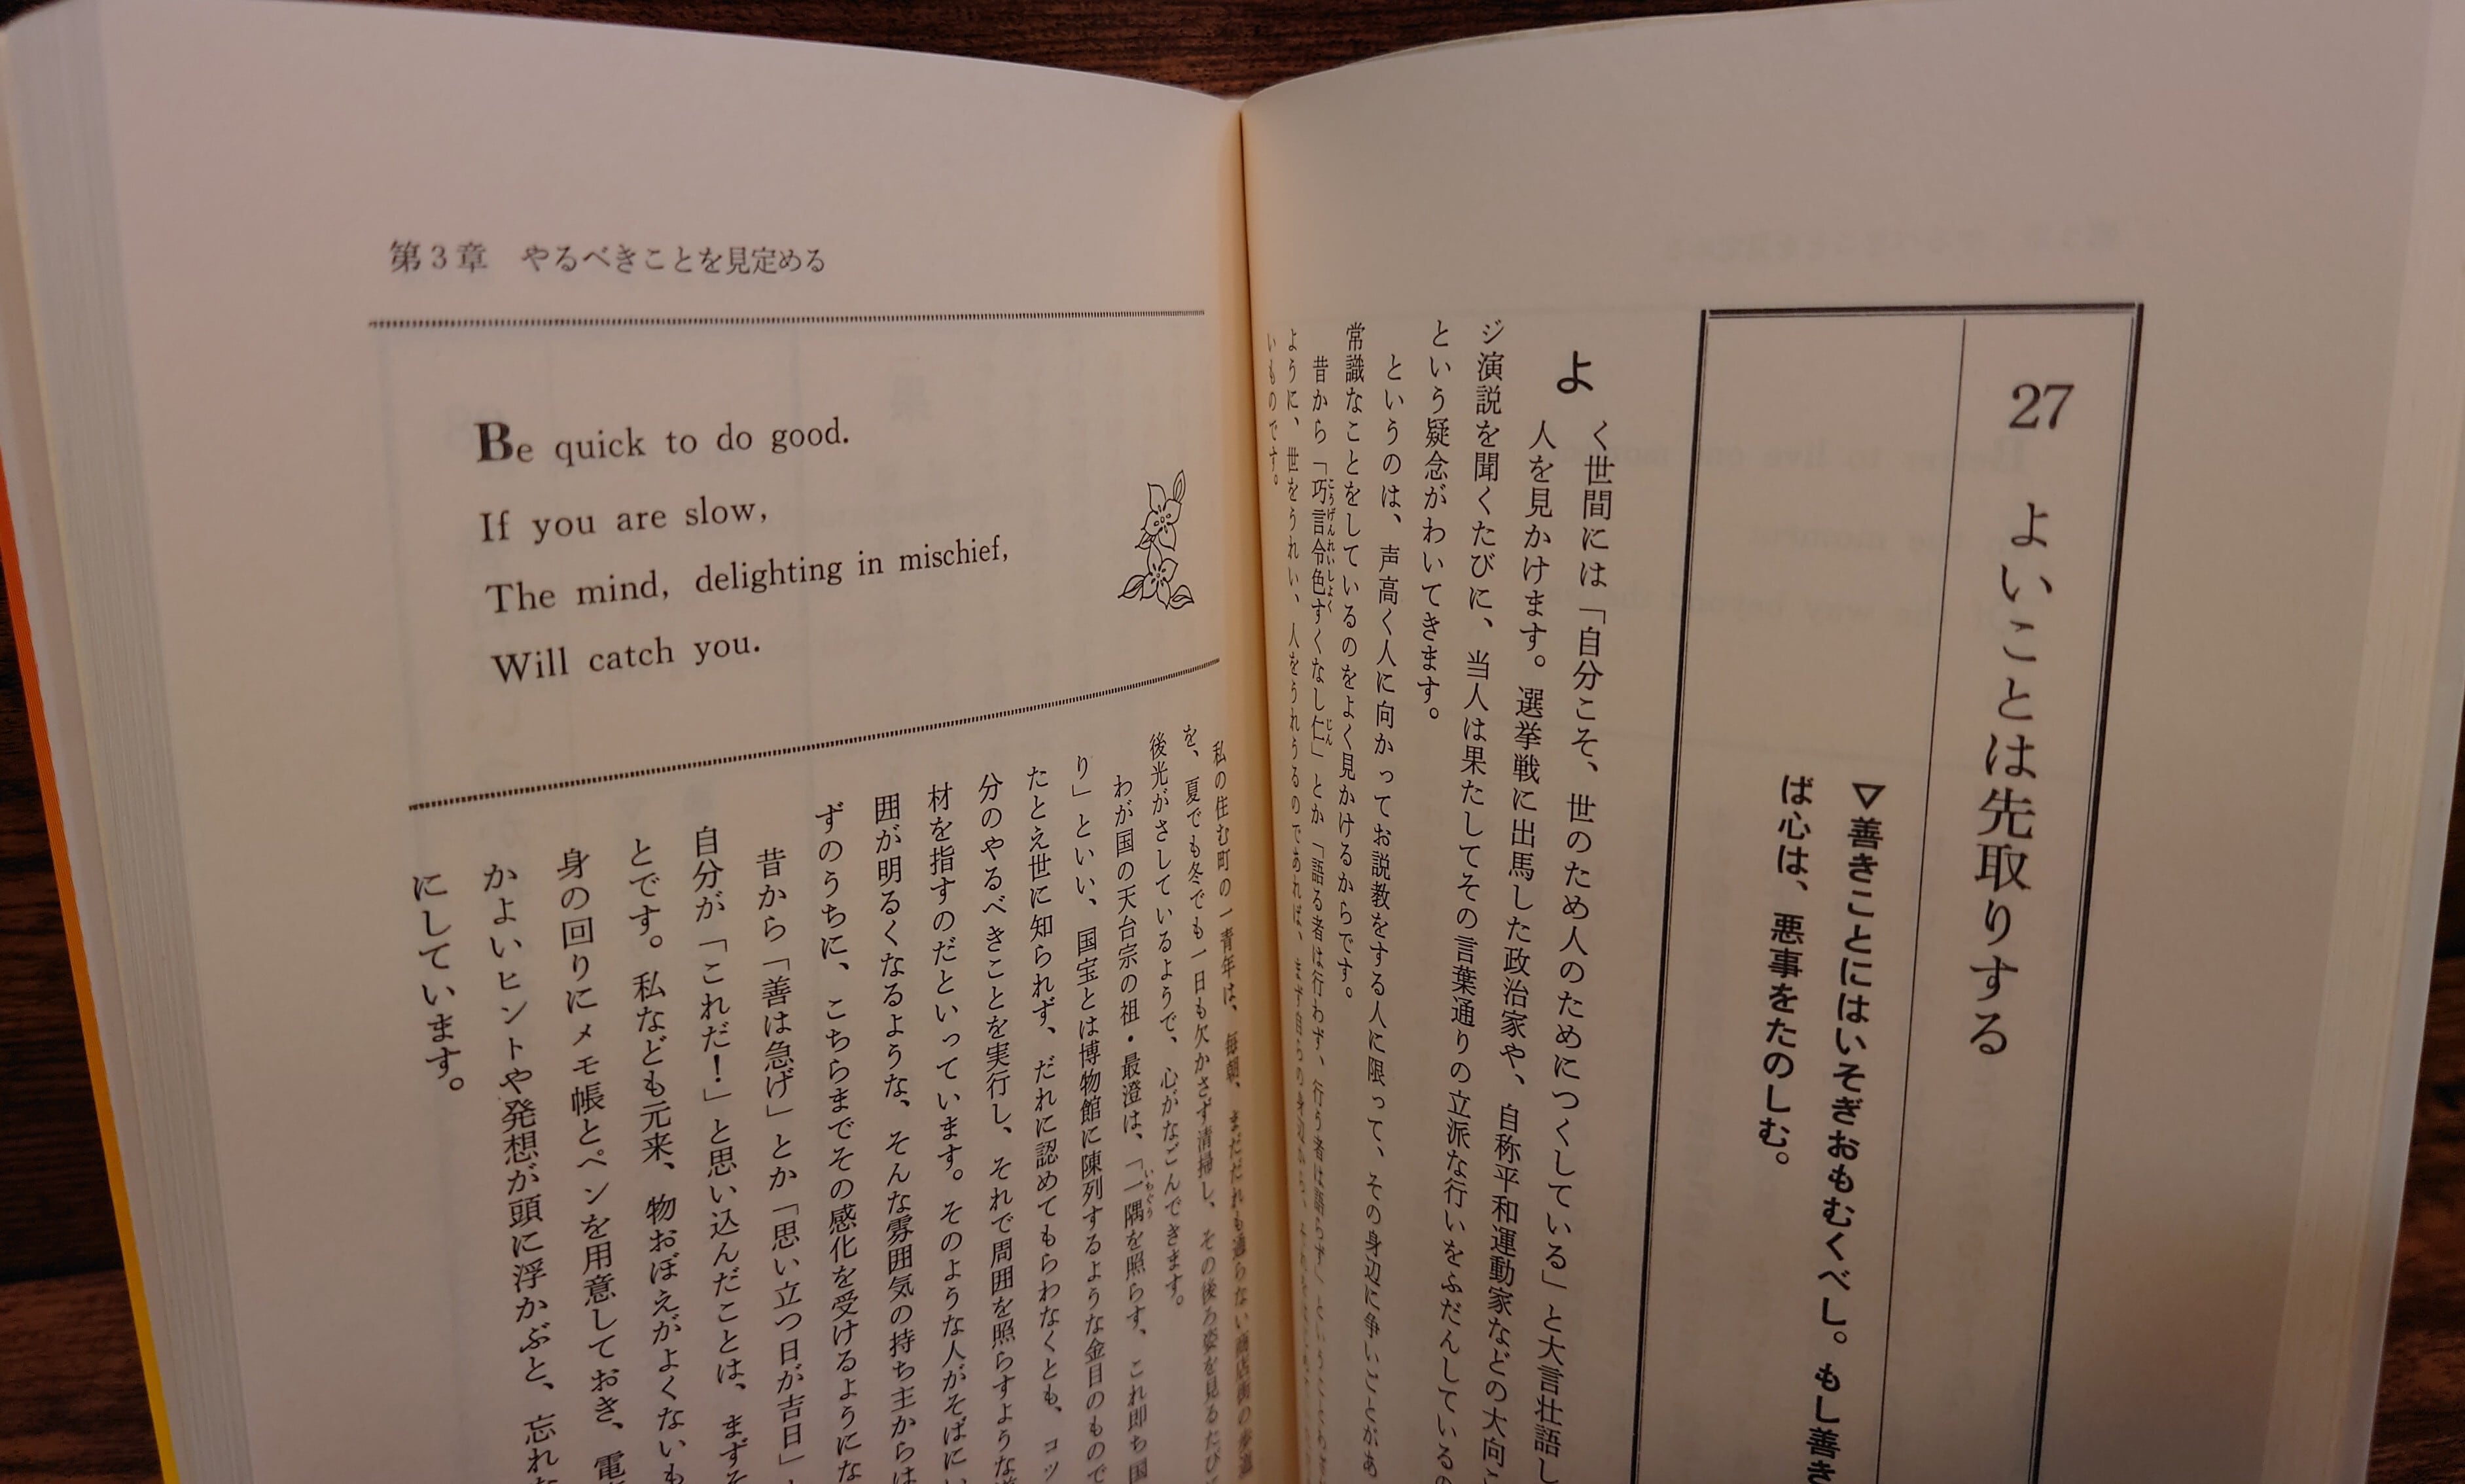 27 よいことは先取りする
▽善きことにはいそぎおもむくべし。もし善き
ば心は、悪事をたのしむ。
よく世間には「自分こそ、世のため人のためにつくしている」と大言壮語し
人を見かけます。選挙戦に出馬した政治家や、自称平和運動家などの大向こ
ジ演説を聞くたびに、当人は果たしてその言葉通りの立派な行いをふだんしているの
という疑念がわいてきます。
というのは、声高く人に向かってお説教をする人に限って、その身辺に争いごとがあ
常識なことをしているのをよく見かけるからです。
昔から「巧言令色すくなし仁」とか「語る者は行わず、行う者は
ように、世をうれい、人をうれうるのであれば、まず
いものです。
第3章 やるべきことを見定める
Be quick to do good.
If you are slow,
The mind, delighting in mischief,
Will catch you.
私の住む町の一青年は、毎朝、まだだれも通らない商店街の歩道
を、夏でも冬でも一日も欠かさず清掃し、その後ろ姿を見るたびに
後光がさしているようで、心がなごんできます。
わが国の天台宗の祖・最澄は、「一隅を照らす、これ即ち国
り」といい、国宝とは博物館に陳列するような金目のもので
たとえ世に知られず、だれに認めてもらわなくとも、コツ
分のやるべきことを実行し、それで周囲を照らすような
材を指すのだといっています。そのような人がそばにい
囲が明るくなるような、そんな雰囲気の持ち主からは
ずのうちに、こちらまでその感化を受けるようにな
昔から「善は急げ」とか「思い立つ日が吉日」
自分が「これだ！」と思い込んだことは、まずそ
とです。私なども元来、物おぼえがよくないも
身の回りにメモ帳とペンを用意しておき、電
かよいヒントや発想が頭に浮かぶと、忘れな
にしています。